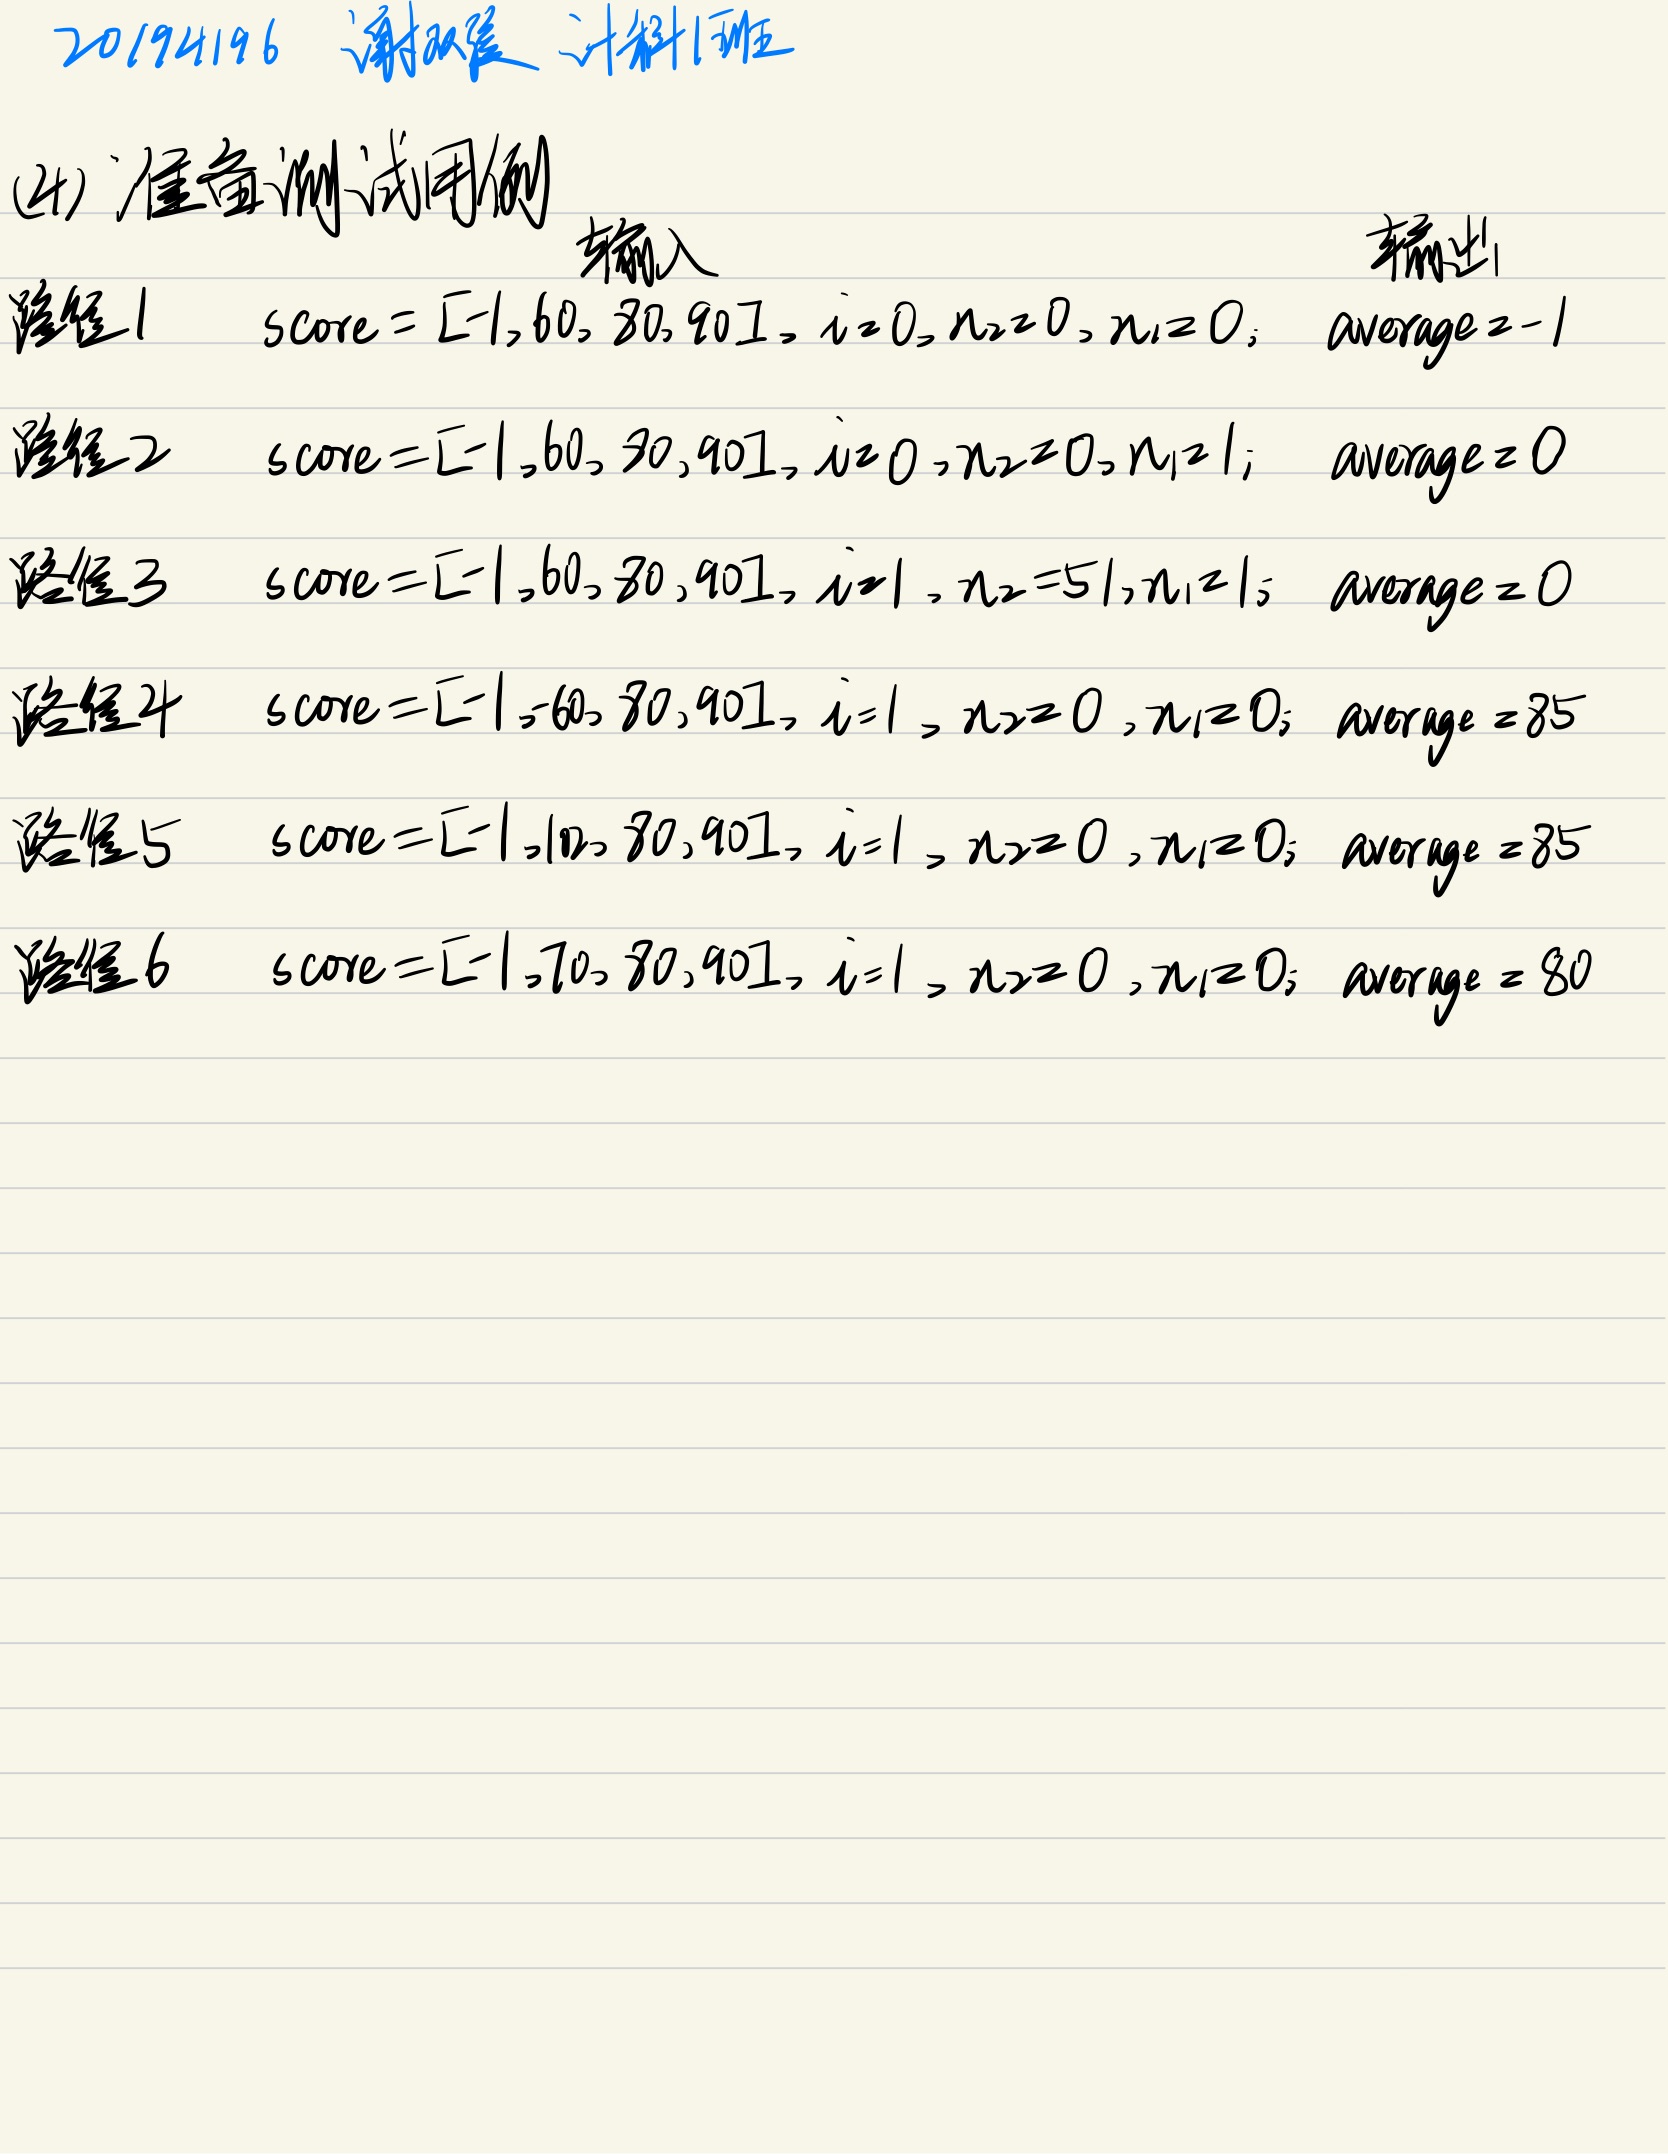 20194196 谢双 计科1班
(4) 准备测试用例
输入 输出
路径1 score=[-1,60,80,90], i=0, n2=0, n1=0; average=-1
路径2 score=[-1,60,80,90], i=0, n2=0, n1=1; average=0
路径3 score=[-1,60,80,90], i=1, n2=51, n1=1; average=0
路径4 score=[-1,-60,80,90], i=1, n2=0, n1=0; average=85
路径5 score=[-1, 80,90], i=1, n2=0, n1=0; average=85
路径6 score=[-1,70,80,90], i=1, n2=0, n1=0; average=80